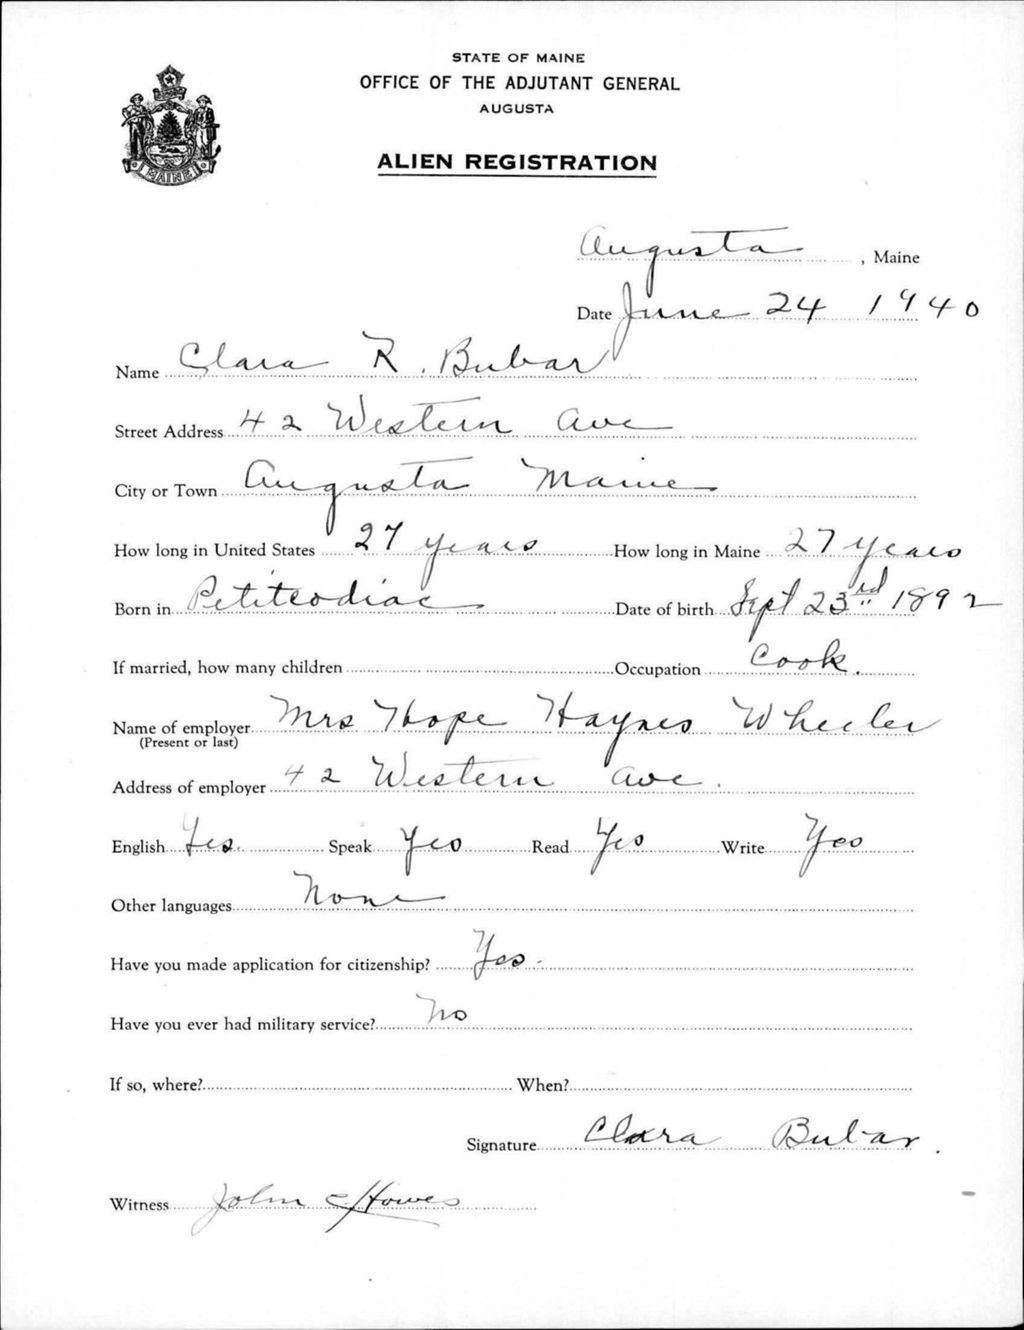 STATE OF MAINE
OFFICE OF THE ADJUTANT GENERAL
AUGUSTA
ALIEN REGISTRATION
MAINE
Augusta, Maine
Date June 24 1940
Name Clara R. Bubar
Street Address 42 Western Ave
City or Town Augusta Maine
How long in United States 27 years How long in Maine 27 years
Born in Petitcodiac Date of birth Sept 23rd 1892
If married, how many children Occupation Cook.
Name of employer Mrs Hope Haynes Wheeler
(Present or last)
Address of employer 42 Western Ave.
English Yes. Speak Yes Read Yes Write Yes
Other languages None
Have you made application for citizenship? Yes.
Have you ever had military service? No
If so, where? When?
Signature Clara Bubar.
Witness John C Howes